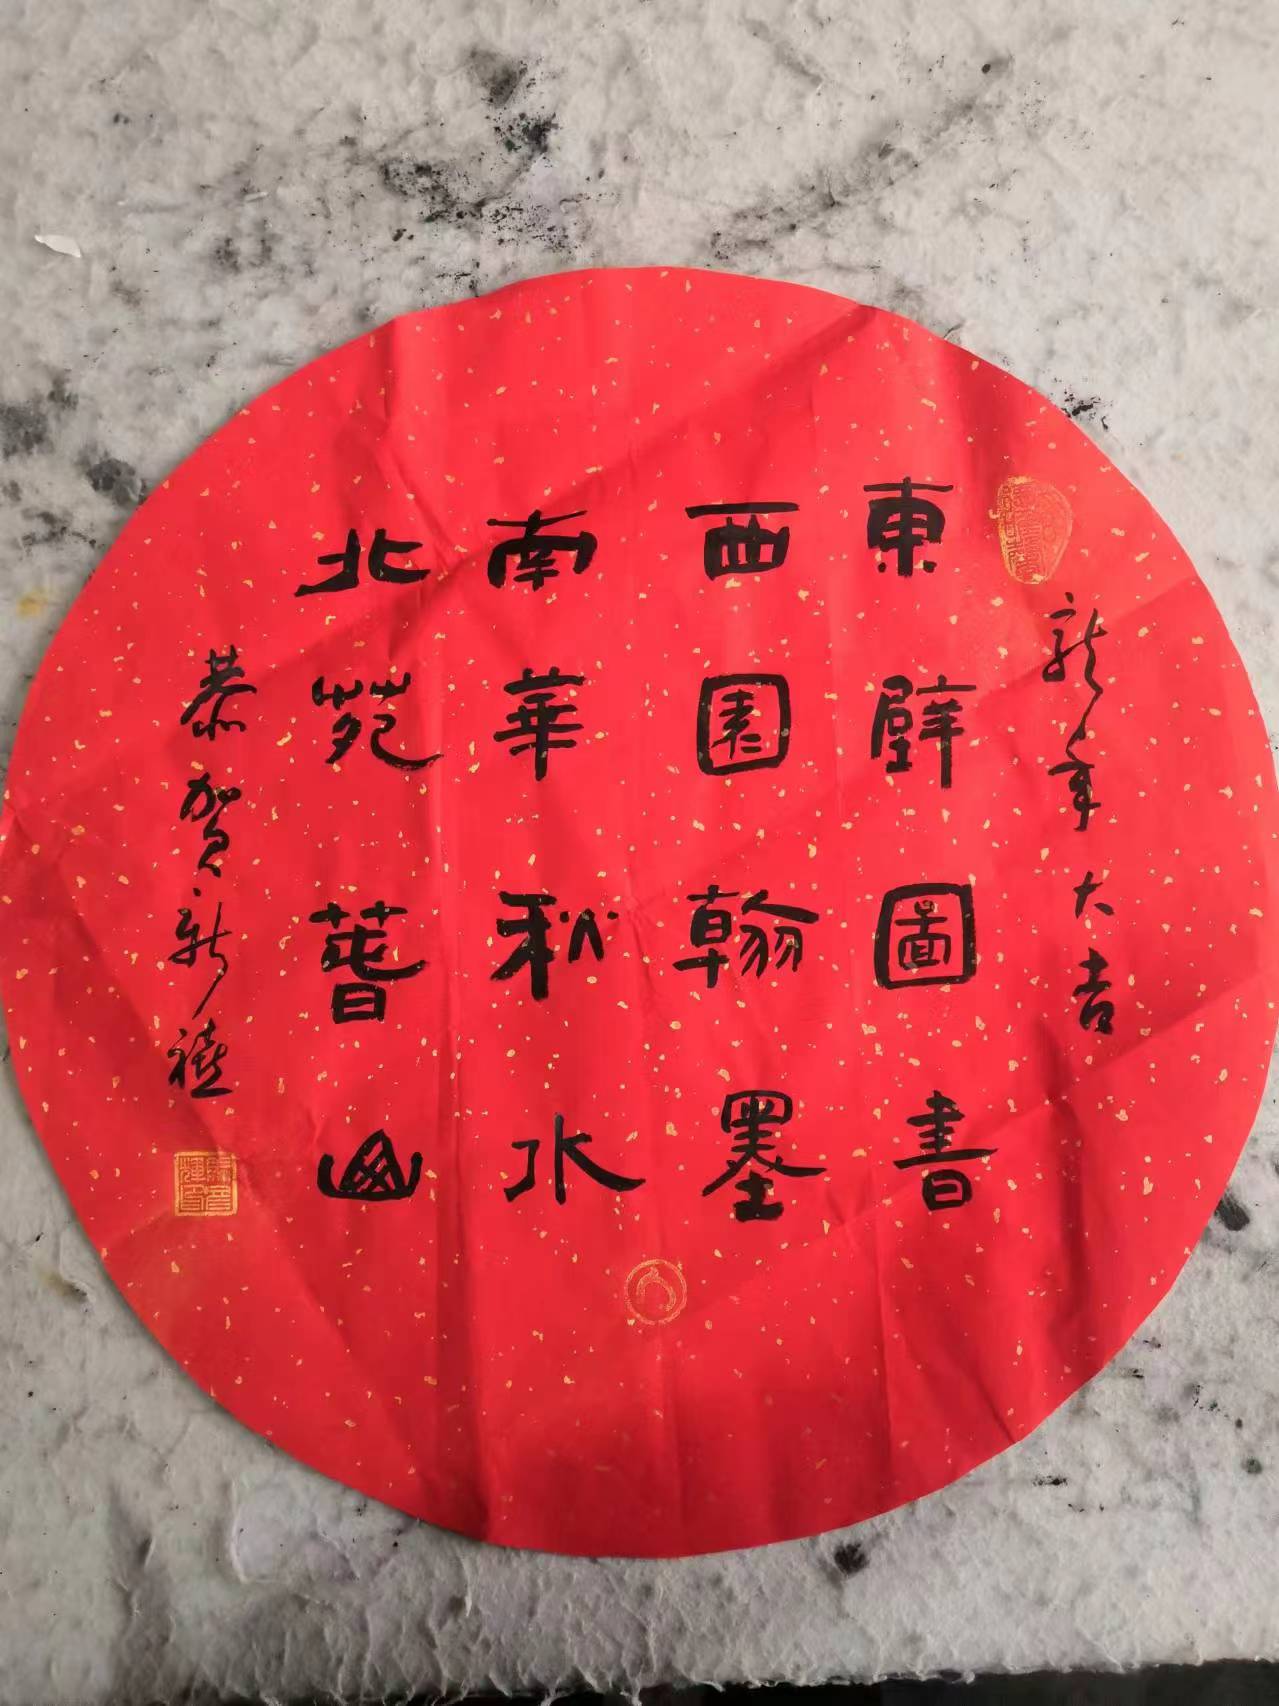 龍年大吉
東壁圖書
西園翰墨
南華秋水
北苑春山
恭賀新禧